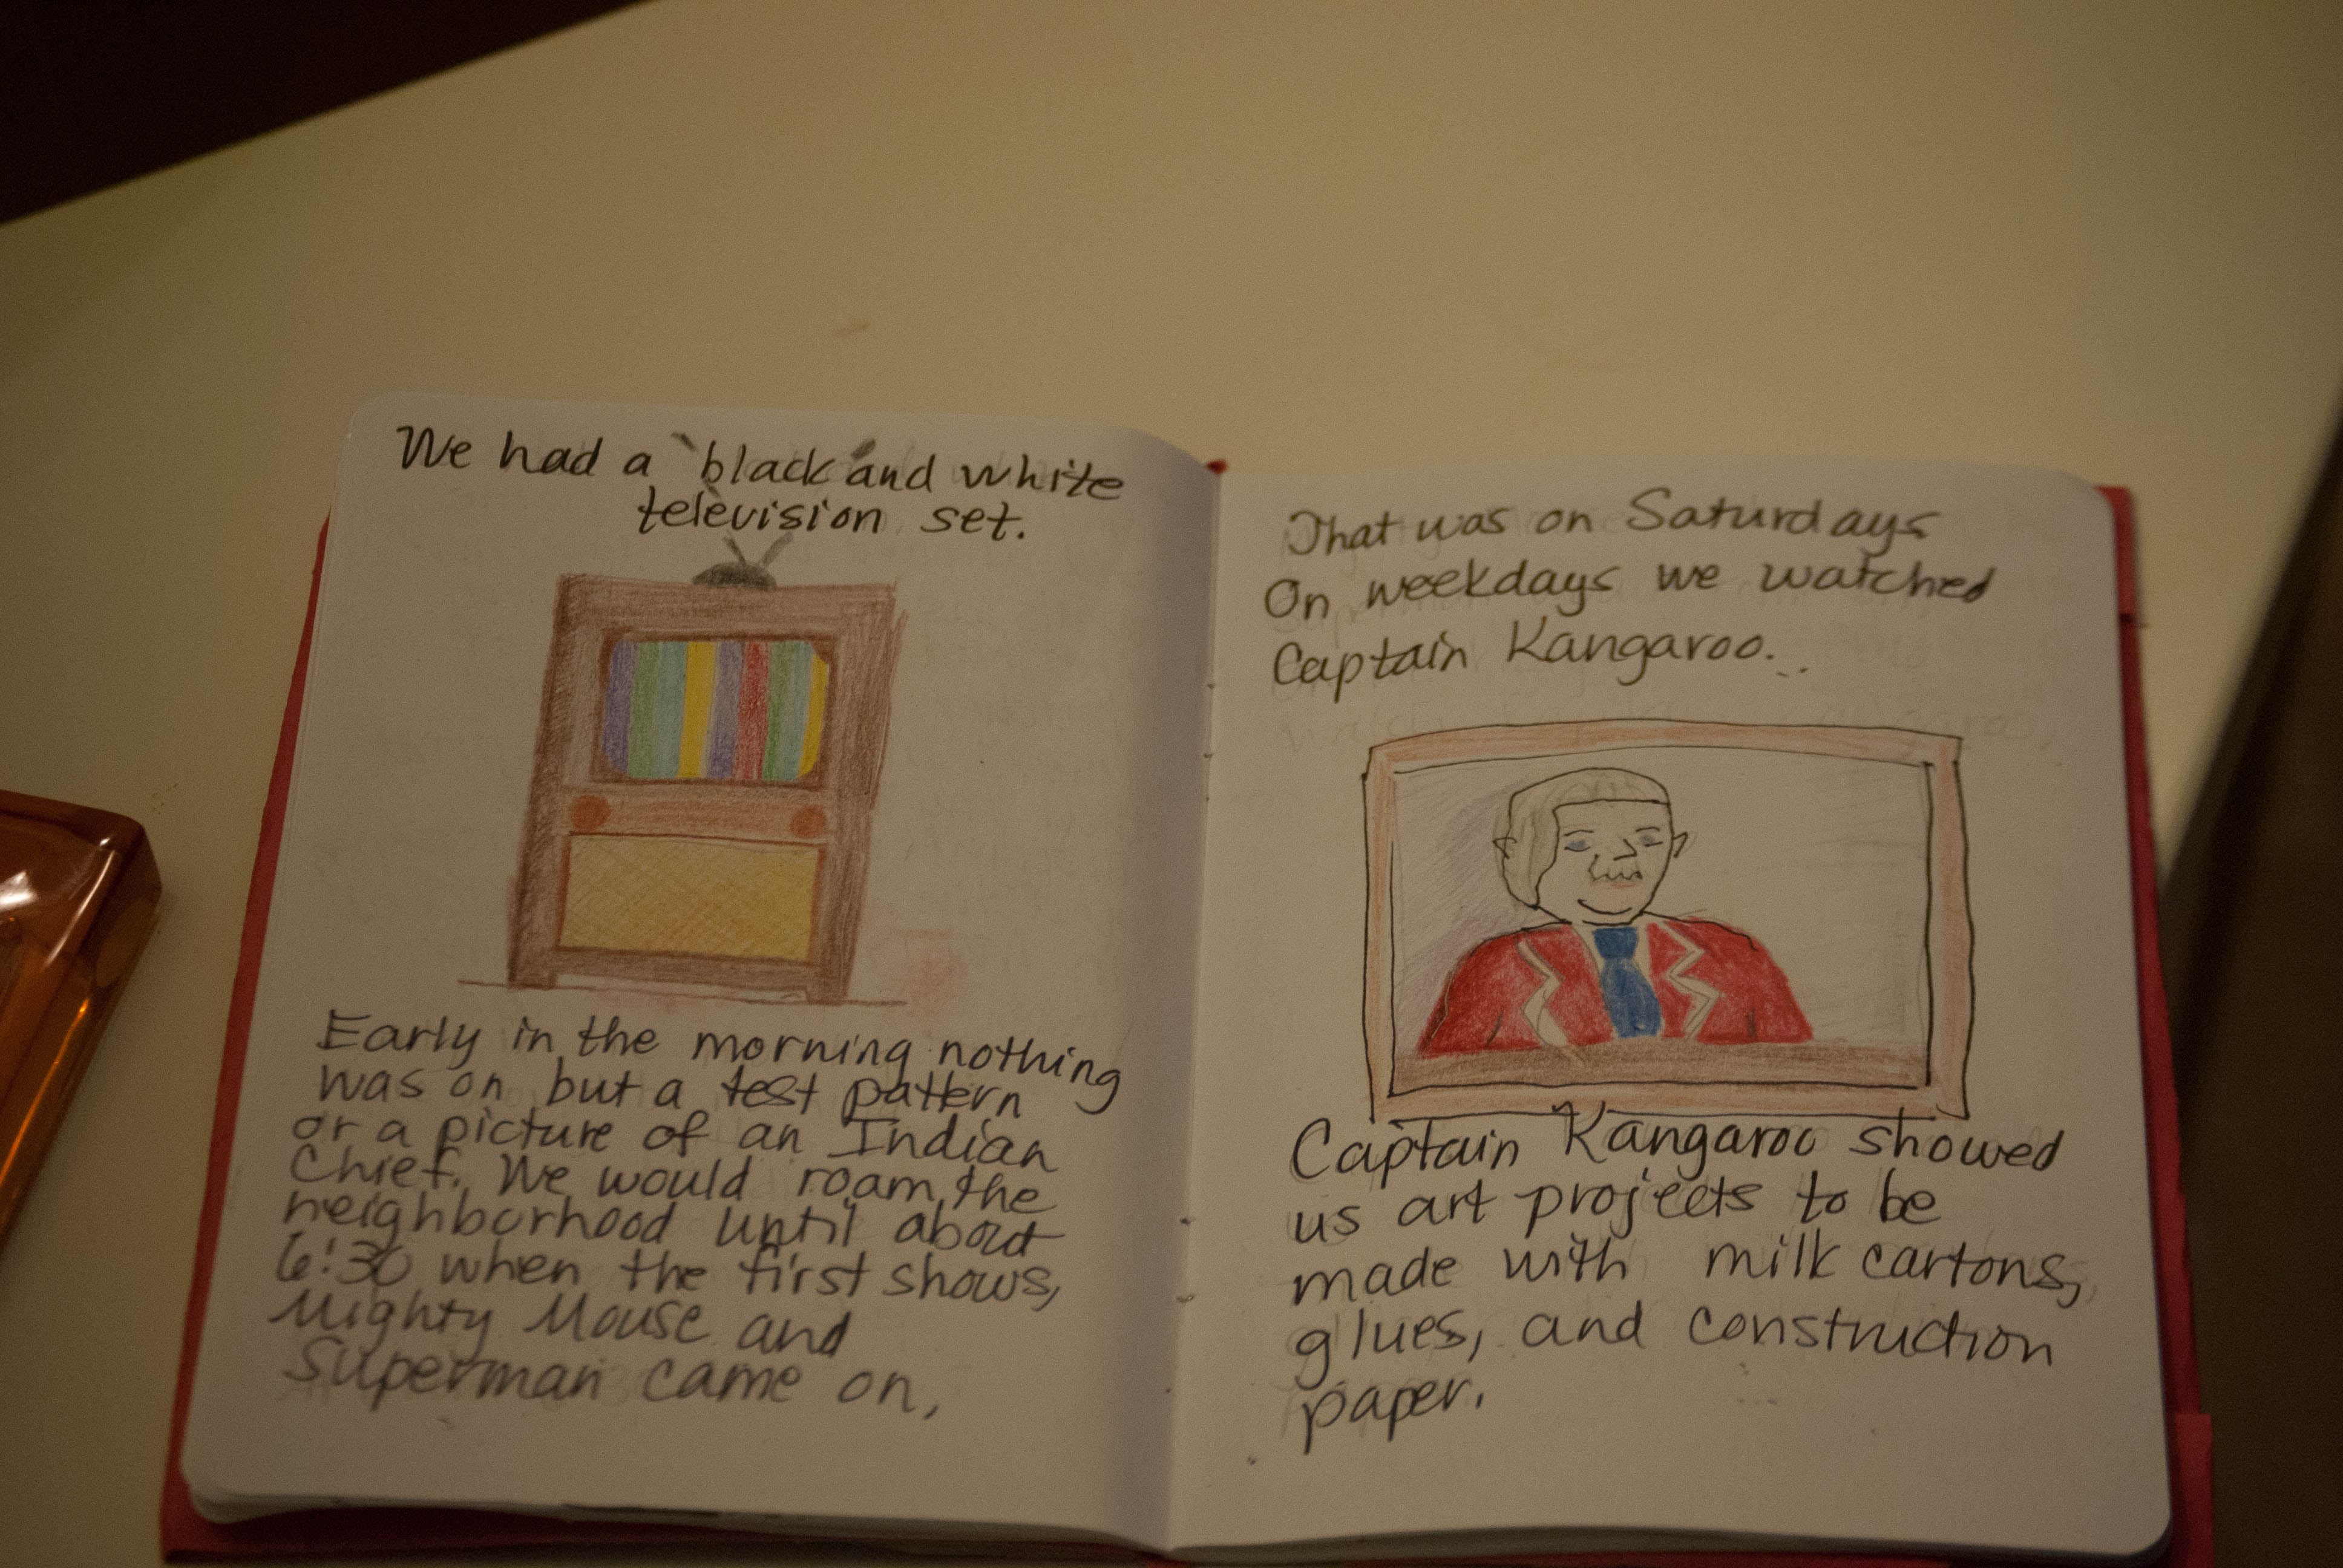 We had a black and white
television set.
Early in the morning nothing
was on but a test pattern
or a picture of an Indian
Chief. We would roam the
neighborhood until about
6:30 when the first shows,
Mighty Mouse and
Superman came on,
That was on Saturdays
On weekdays we watched
Captain Kangaroo.
Captain Kangaroo showed
us art projects to be
made with milk cartons,
glues, and construction
paper.